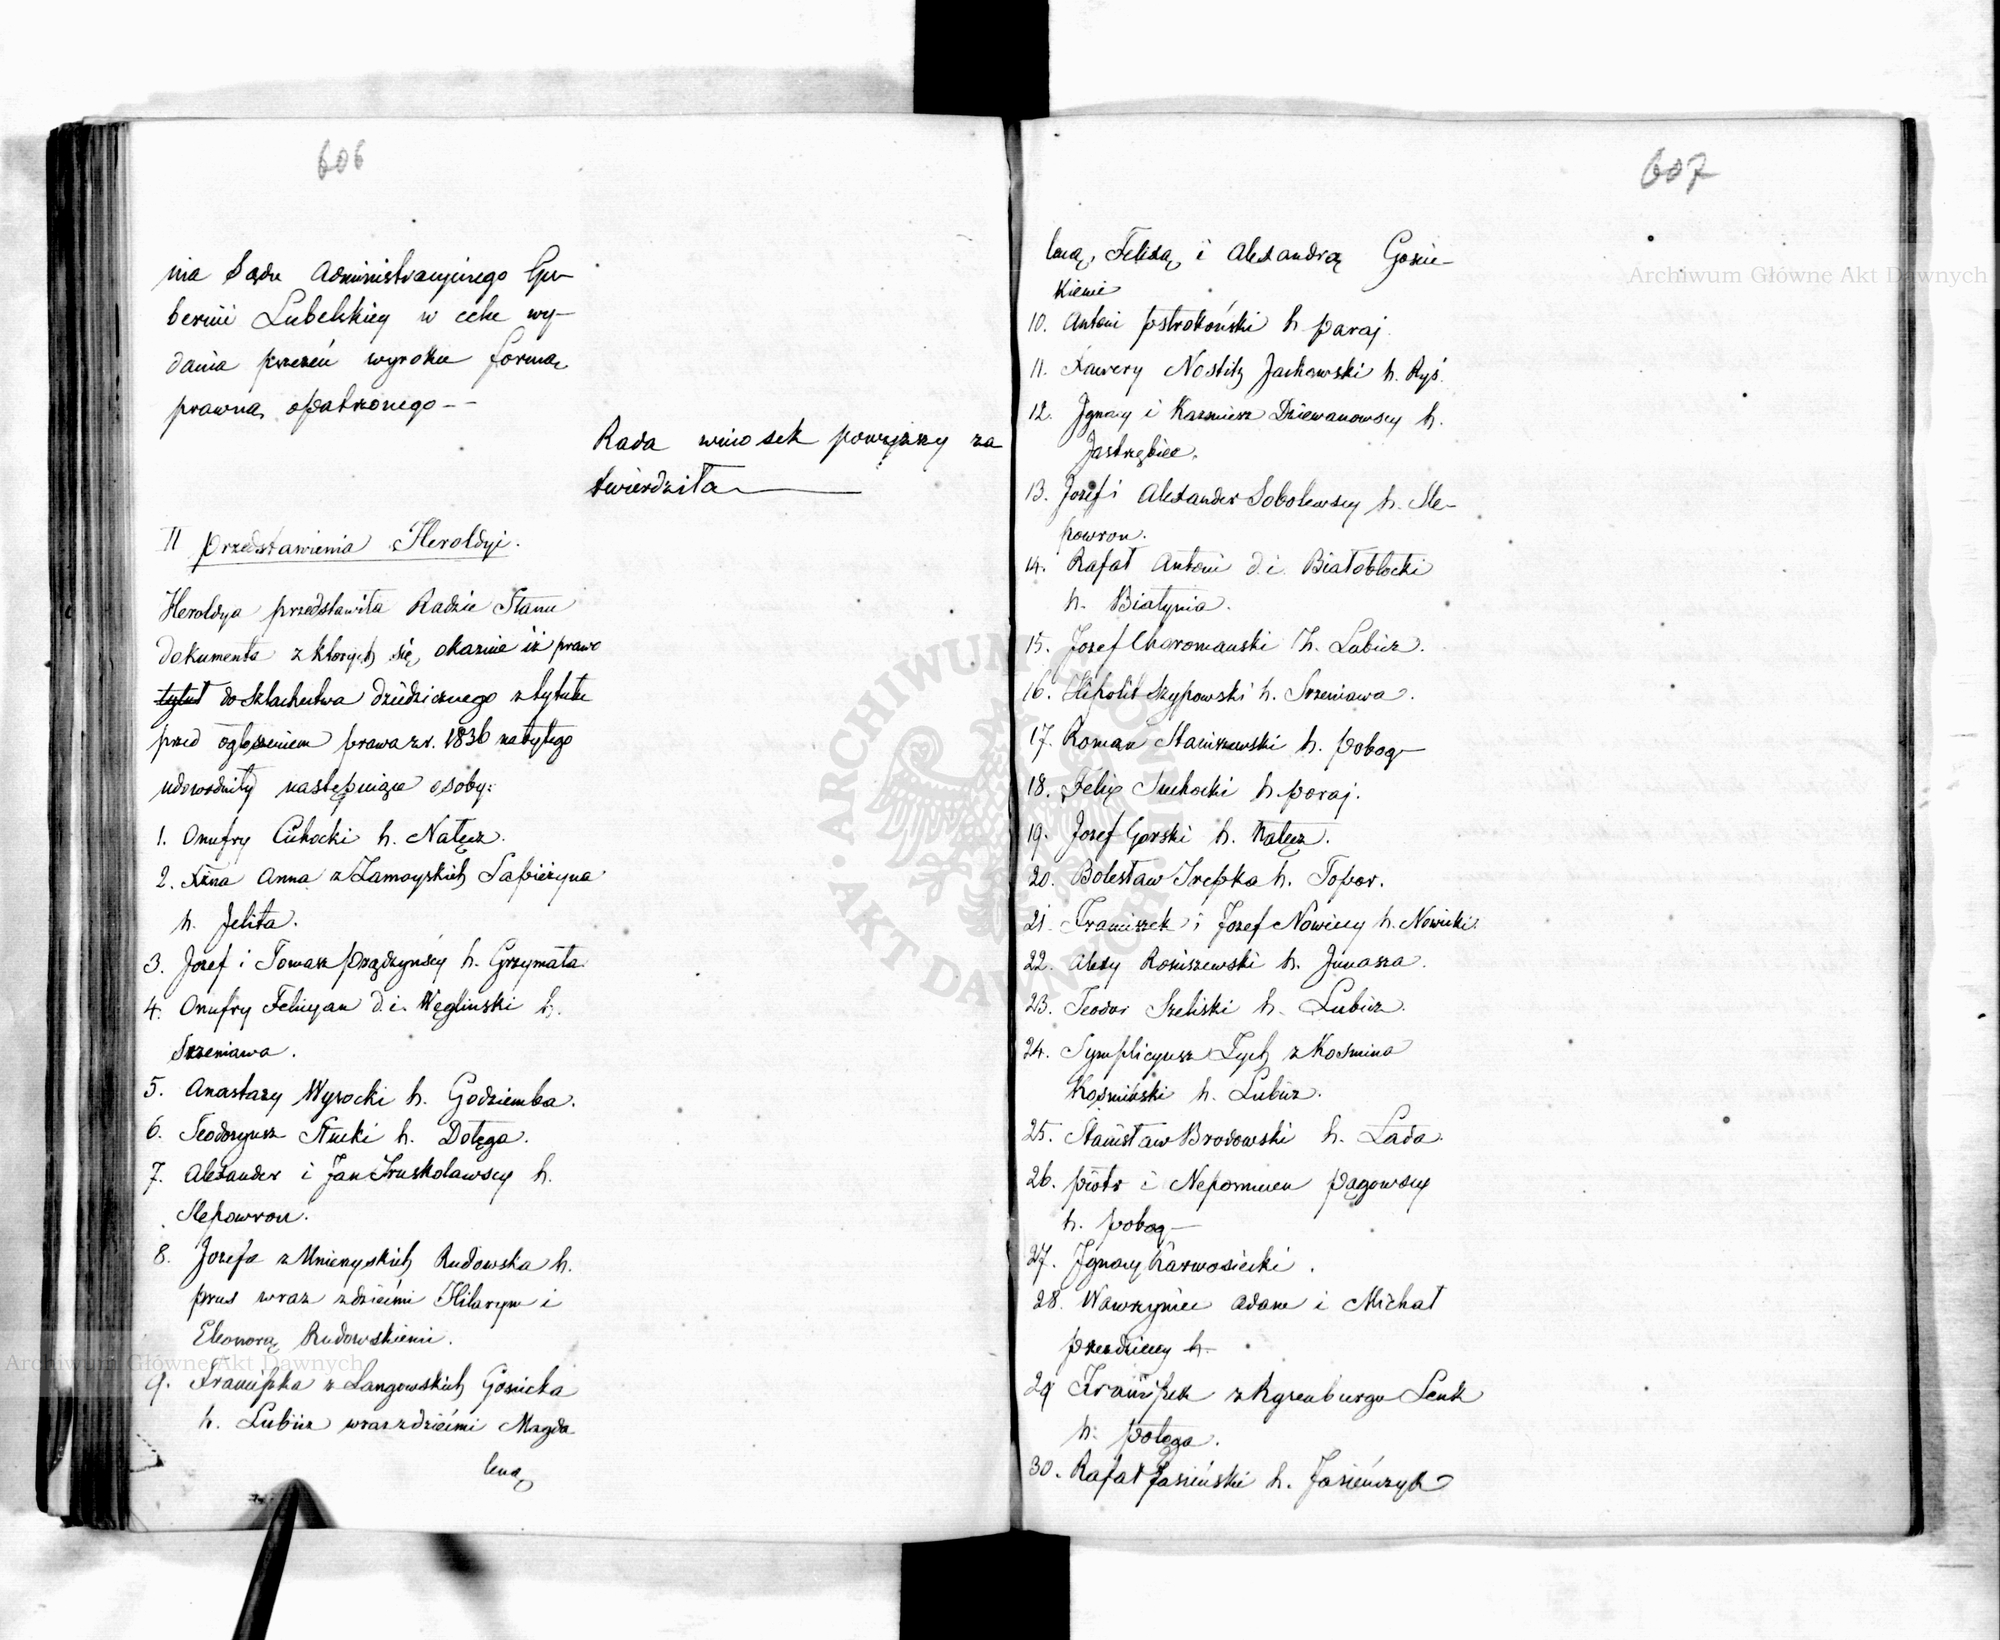 606
nia Sądu Administracyjnego Gu-
bernii Lubelskiey w celu wy-
dania przezeń wyroku formą
prawną opatrzonego--
Rada wniosek powyższy za
twierdziła
II Przedstawienia Heroldyi.
Heroldya przedstawiła Radzie Stanu
dokumenta z których się okazuie iż prawo
tytuł do Szlachectwa dziedzicznego z tytułu
przed ogłoszeniem prawa z r. 1836 nabytego
udowodniły następuiące osoby:
1. Onufry Cichocki h. Nałęcz.
2. Xżna Anna z Zamoyskich Sapieżyna
h. Jelita.
3. Jozef i Tomasz Prądzyńscy h. Grzymała
4. Onufry Felicyan d. i. Węglinski h.
Szreniawa.
5. Anastazy Wysocki h. Godziemba.
6. Teodozyusz h. Dołęga.
7. Alexander i Jan Truskolawscy h.
Slepowron.
8. Jozefa z Rudowska h.
Prus wraz z dziećmi Hilarym i
Eleonorą Rudowskiemi.
9. Franciszka z Langowskich Gosiecka
h. Lubicz wraz z dziećmi Magda
leną
607
leną, Felixą i Alexandrą Gosiec-
kiemi
10. Antoni Pstrokoński h. Paraj.
11. Xawery Nostitz Jackowski h. Ryś.
12. Ignacy i Kazmierz Dziewanowscy h.
Jastrzębiec.
13. Jozef i Alexander Sobolewscy h. Sle-
powron.
14. Rafał Antoni d. i. Białobłocki
h. Białynia.
15. Jozef Charomanski h. Lubicz.
16. Hipolit Szypowski h. Srzeniawa.
17. Roman Staniszewski h. Pobog-
18. Felix Suchocki h. Poraj.
19. Jozef Gorski h. Nałęcz.
20. Bolesław Trepka h. Topor.
21. Franciszek i Jozef Nowiccy h. Nowicki.
22. Alexy Rosciszewski h. Junosza.
23. Teodor Szeliski h. Lubicz.
24. Symplicyusz Tych z Kosmina
Kosmiński h. Lubicz.
25. Stanisław Brodowski h. Lada.
26. Piotr i Nepomucen Pągowscy
h. Pobog-
27. Ignacy Karwosiecki.
28. Wawrzyniec Adam i Michał
Przezdzieccy h.
29 Franciszek z Rysenburga Lenk
h. Dołęga.
30. Rafał Jasieński h. Jasieńczyk
Archiwum Główne Akt Dawnych
Archiwum Główne Akt Dawnych
ARCHIWUM GŁÓWNE AKT DAWNYCH